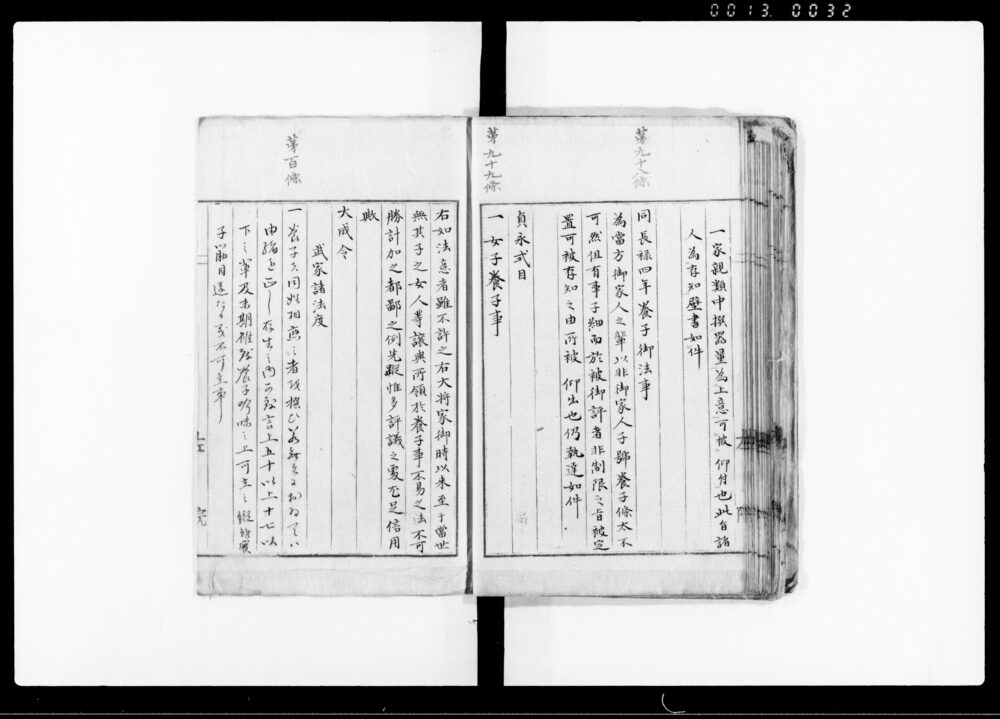 0013 0032
第九十八條
一家親類中撰器量為上意可被 仰付也此旨諸
人為存知壁書如件
同長祿四年養子御法事
為當方御家人之輩以非御家人子號養子條太不
可然但有事子細而於被御評者非制限之旨被定
置可被存知之由所被 仰出也仍執達如件
第九十九條
貞永式目
一 女子養子事
右如法意者雖不許之右大将家御時以来至于當世
無其子之女人等讓與所領於養子事不易之法不可
勝計加之都鄙之例先蹤惟多評議之處尤足信用
歟
大成令
武家諸法度
第百條
一 養子者同姓相應之者を撰ひ若無之におゐてハ
由緒を正し存生之内可致言上五十以上十七以
下之輩及末期雖致養子吟味之上可立之縱雖實
子筋目違たる義不可立事